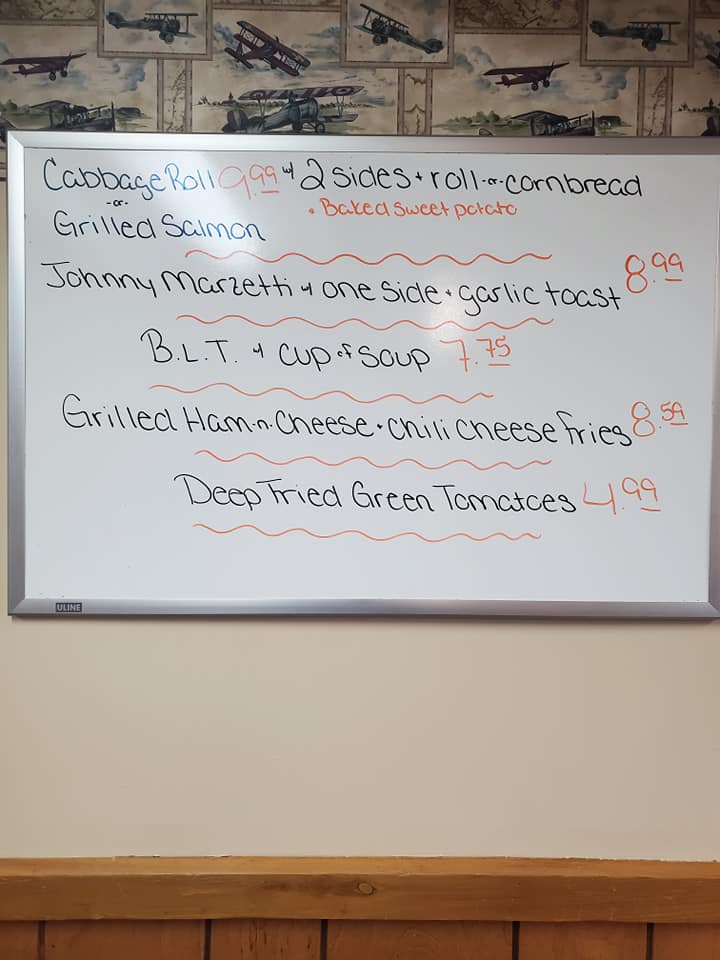 Cabbage Roll 9.99 w/ 2 sides + roll -or- cornbread
-or-
• Baked sweet potato
Grilled Salmon
Johnny Marzetti w/ one side + garlic toast 8.99
B.L.T. w/ cup of soup 7.75
Grilled Ham-n-Cheese + chili cheese fries 8.59
Deep Fried Green Tomatoes 4.99
ULINE